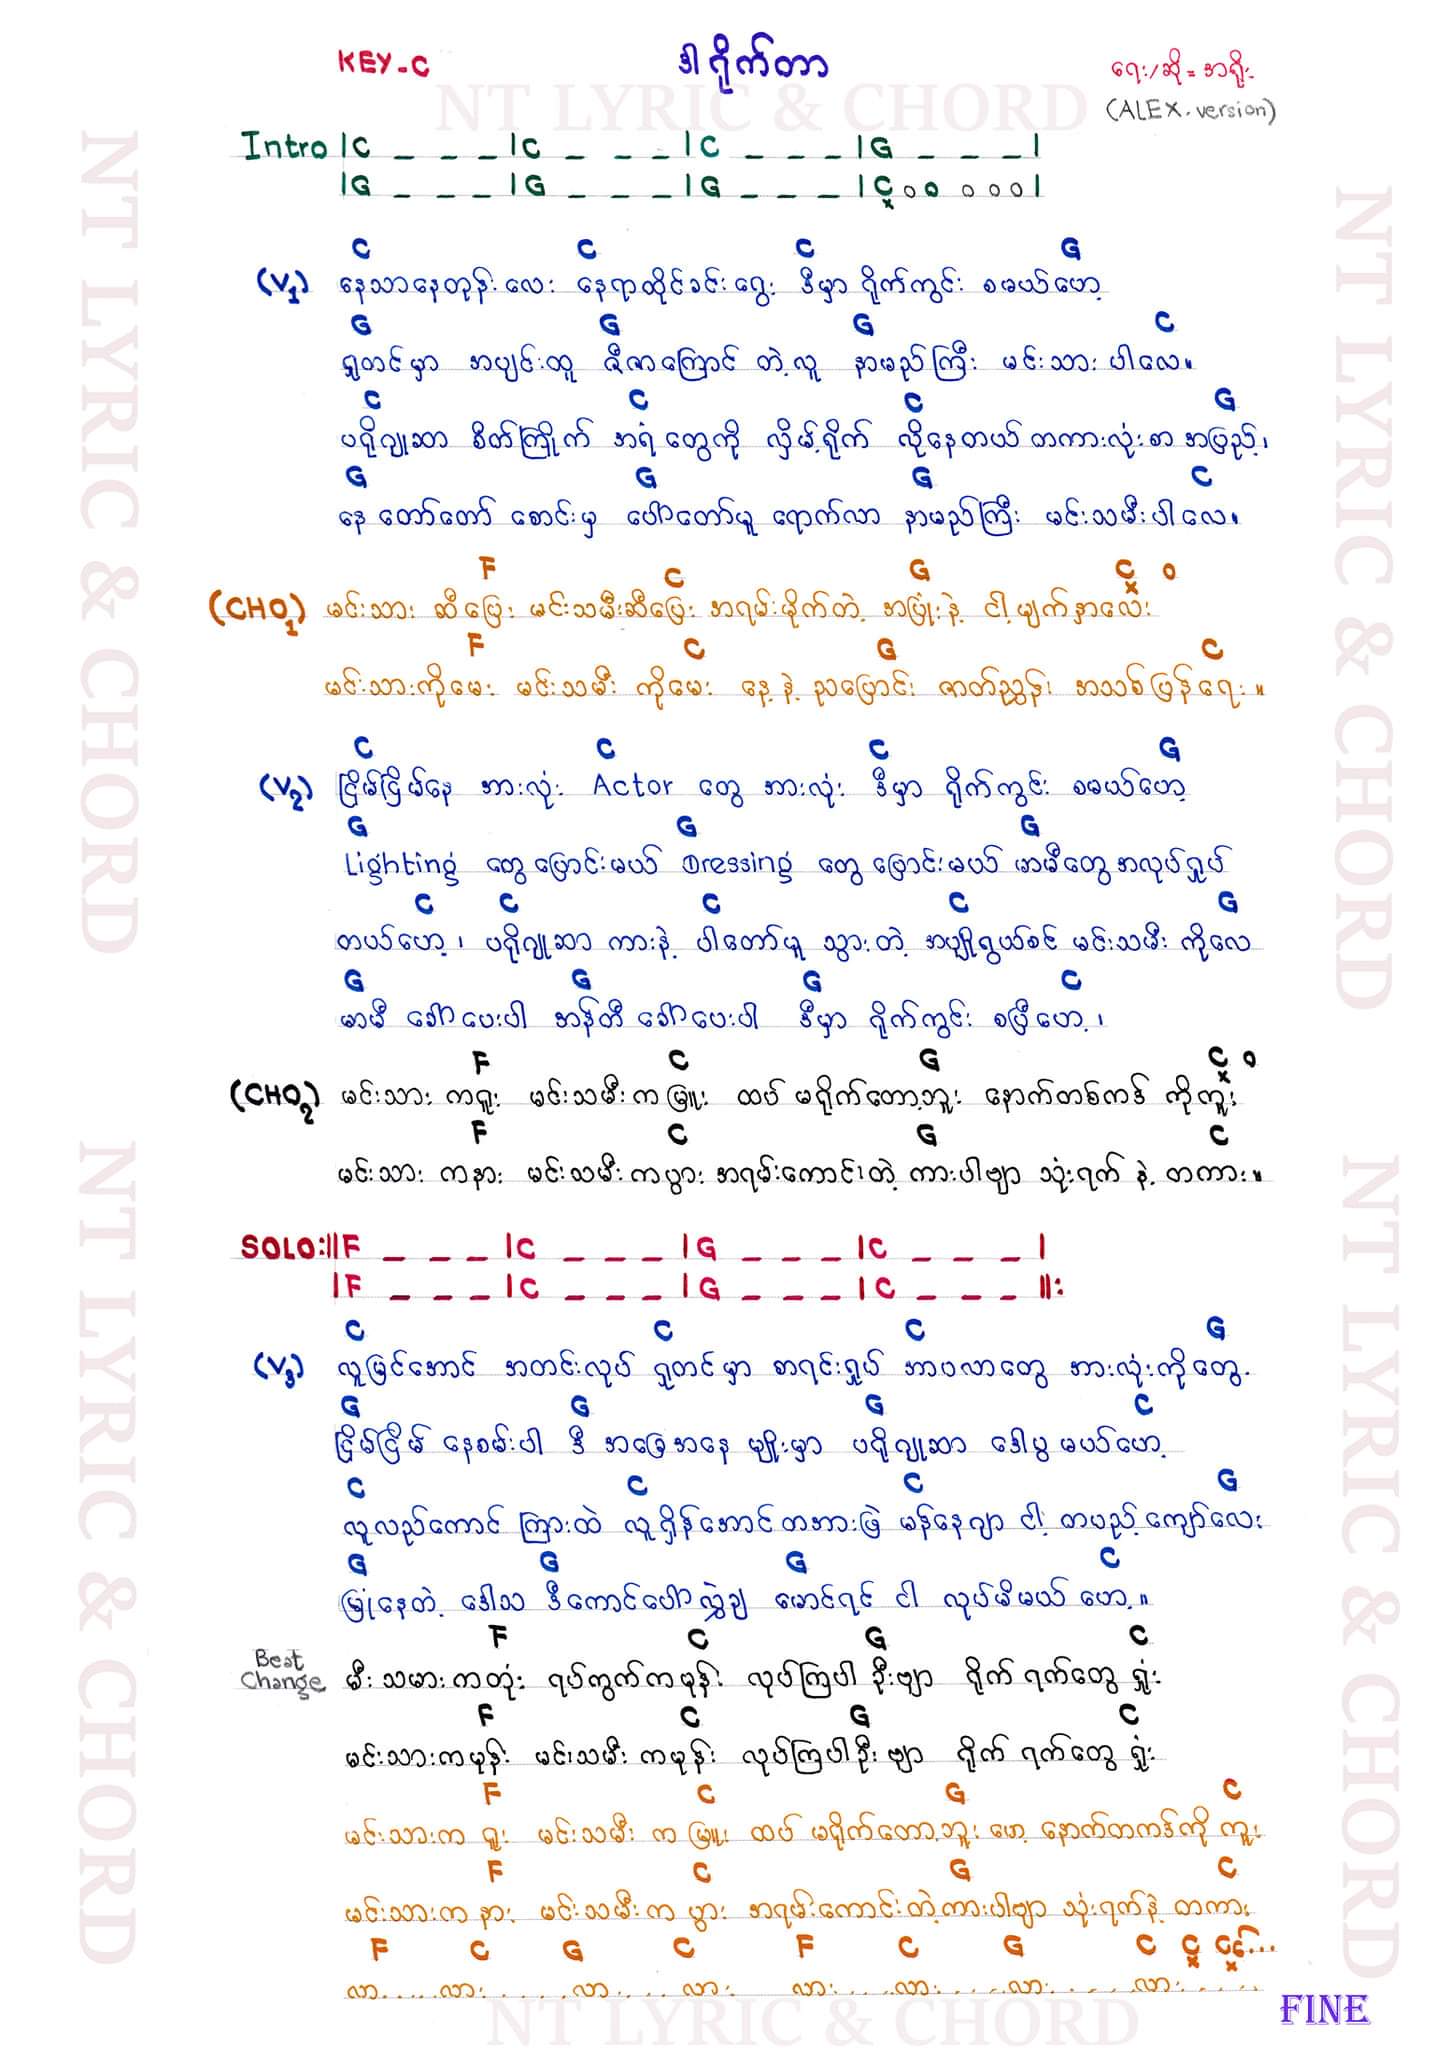 KEY-C
ဒါရိုက်တာ
ရေး/ဆို = အရိုး
(ALEX. version)
NT LYRIC & CHORD
Intro |C _ _ _ |C _ _ _ |C _ _ _ |G _ _ _ |
|G _ _ _ |G _ _ _ |G _ _ _ |C o o o o o |
C C C G
(V1) နေသာနေတုန်း လေး နေရာထိုင်ခင်း ရွေး ဒီမှာ ရိုက်ကွင်း စမယ်ဟေ့
G G G C
ရှုတင်မှာ အပျင်းထူ ဇီဇာကြောင် တဲ့လူ နာမည်ကြီး မင်းသား ပါလေ။
C C C G
ပရိုဂျုဆာ စိတ်ကြိုက် အရံတွေကို လှိမ့်ရိုက် လိုနေတယ် တကားလုံးစာ အပြည့်၊
G G G C
နေ တော်တော် စောင်းမှ ပေါ်တော်မူ ရောက်လာ နာမည်ကြီး မင်းသမီးပါလေ။
F C G C o
(CHO1) မင်းသား ဆီပြေး မင်းသမီးဆီပြေး အရမ်းမိုက်တဲ့ အပြုံးနဲ့ ငါ့မျက်နှာလေး
F C G C
မင်းသားကိုမေး မင်းသမီး ကိုမေး နေ့နဲ့ ညပြောင်း ဇာတ်ညွှန်း အသစ်ပြန်ရေး။
C C C G
(V2) ငြိမ်ငြိမ်နေ အားလုံး Actor တွေ အားလုံး ဒီမှာ ရိုက်ကွင်း စမယ်ဟေ့
G G G
Lighting တွေပြောင်းမယ် Dressing တွေ ပြောင်းမယ် မာမီတွေအလုပ်ရှုပ်
C C C C G
တယ်ဟေ့၊ ပရိုဂျုဆာ ကားနဲ့ ပါတော်မူ သွားတဲ့ အပျိုရွယ်စင် မင်းသမီး ကိုလေ
G G G C
မာမီ ခေါ်ပေးပါ အန်တီ ခေါ်ပေးပါ ဒီမှာ ရိုက်ကွင်း စပြီဟေ့၊
F C G C o
(CHO2) မင်းသား ကရူး မင်းသမီးက မြူး ထပ် မရိုက်တော့ဘူး နောက်တစ်ကဒ် ကိုကူး
F C G C
မင်းသား ကနား မင်းသမီးကပွား အရမ်းကောင်းတဲ့ ကားပါဗျာ သုံးရက် နဲ့ တကား။
SOLO:||F _ _ _ |C _ _ _ |G _ _ _ |C _ _ _ |
|F _ _ _ |C _ _ _ |G _ _ _ |C _ _ _ ||:
C C C G
(V3) လူမြင်အောင် အတင်းလုပ် ရှုတင်မှာ စာရင်းရှုပ် အာပလာတွေ အားလုံးကိုတွေ့
G G G C
ငြိမ်ငြိမ် နေစမ်းပါ ဒီ အခြေအနေ မျိုးမှာ ပရိုဂျုဆာ ဒေါပွ မယ်ဟေ့
C C C G
လူလည်ကောင် ကြားထဲ လူရှိန်အောင်တအားဖြဲ မန်နေဂျာ ငါ့ တပည့်ကျော်လေး
G G G C
မြုံနေတဲ့ ဒေါသ ဒီကောင်ပေါ်လွှဲချ မောင်ရင် ငါ လုပ်မိမယ် ဟေ့။
F C G C
Beat Change မီးသမားကတုံး ရပ်ကွက်ကမုန်း လုပ်ကြပါဦးဗျာ ရိုက်ရက်တွေ ရှုံး
F C G C
မင်းသားကမုန်း မင်းသမီး ကမုန်း လုပ်ကြပါဦးဗျာ ရိုက် ရက်တွေ ရှုံး
F C G C
မင်းသားက ရူး မင်းသမီး က မြူး ထပ် မရိုက်တော့ဘူး ဟေ့ နောက်တကဒ်ကို ကူး
F C G C
မင်းသားက နား မင်းသမီးက ပွား အရမ်းကောင်းတဲ့ကားပါဗျာ သုံးရက်နဲ့ တကား
F C G C F C G C C C...
လာ.....လား.......လာ......လား လား.....လာ......လာ......လား......
FINE
NT LYRIC & CHORD
NT LYRIC & CHORD
NT LYRIC & CHORD
NT LYRIC & CHORD
NT LYRIC & CHORD